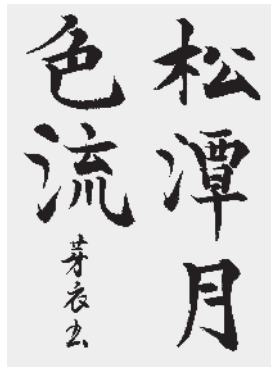 松潭月
色流
芽衣书